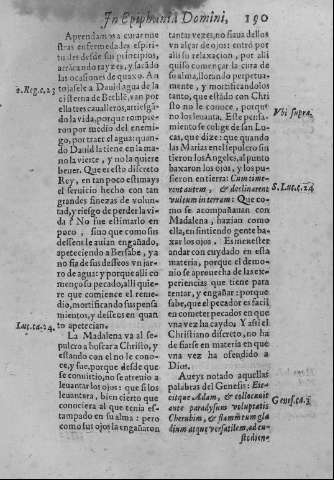 In Epiphania Domini, 190
Aprendamos a curar nue
stras enfermedades espiri-
tuales desde sus principios,
arrãcando rayzes, y sacãdo
las ocasiones de quaxo. An
tojasele a Dauid agua de la
cisterna de Bethlẽ, van por
ella tres caualleros, arriesgã-
do la vida, porque rompie-
ron por medio del enemi-
go, por traer el agua: quan-
do Dauid la tiene en la ma-
no la vierte, y no la quiere
beuer. Que era este discreto
Rey, en tan poco estimays
el seruicio hecho con tan
grandes finezas de volun-
tad, y riesgo de perder la vi-
da? No fue estimarlo en
poco, sino que como sus
desseos le auian engañado,
apeteciendo a Bersabe, ya
no fia de sus desseos vn jar-
ro de agua: y porque alli co
mengo su pecado, alli quie-
re que comience el reme-
dio, mortificando sus pensa
mientos, y desseos en quan
to apetecian.
La Madalena va al se-
pulcro a boscar a Christo, y
estando con el no le cono-
ce, y fue, porque desde que
se conuirtio, no se atreuio a
leuantar los ojos: que si los
leuantera, bien cierto que
conociera al que tenia es-
tampado en su alma: pero
como sus ojos la engañaron
2.Reg.c.23
Luc.ca.24.
tantas vezes, no fiaua dellos
vn alçar de ojos: entrò por
alli su relaxacion, por alli
quiso començar la cura de
su alma, llorando perpetua-
mente, y mortificandolos
tanto, que estãdo con Chri
sto no le conoce, porque
no los leuanta. Este pensa-
miento se colige de san Lu-
cas, que dize: que quando
las Marias en el sepulcro sin
tieron los Angeles, al punto
baxaron los ojos, y los pu-
sieron en tierra: Cum time-
rent autem, & declinarent
vultum in terram: Que co-
mo se acompañauan con
Madalena, hazian como
ella, en sintiendo gente ba-
xar los ojos. Es menester
andar con cuydado en esta
materia, porque el demo-
nio se aprouecha de las ex-
periencias que tiene para
tentar, y engañar: porque
sabe, que el pecador es facil
en cometer pecados en que
vna vez ha caydo. Y assi el
Christiano discreto, no ha
de fiarse en materia en que
vna vez ha ofendido a
Dios.
Aueys notado aquellas
palabras del Genesis: Eie-
citque Adam, & collocauit
ante paradysum voluptatis
Cherubim, & flammeum gla
dium atque versatilem, ad cu-
stodien-
Vbi supra.
S. Luc.c.24
Genes.ca.3